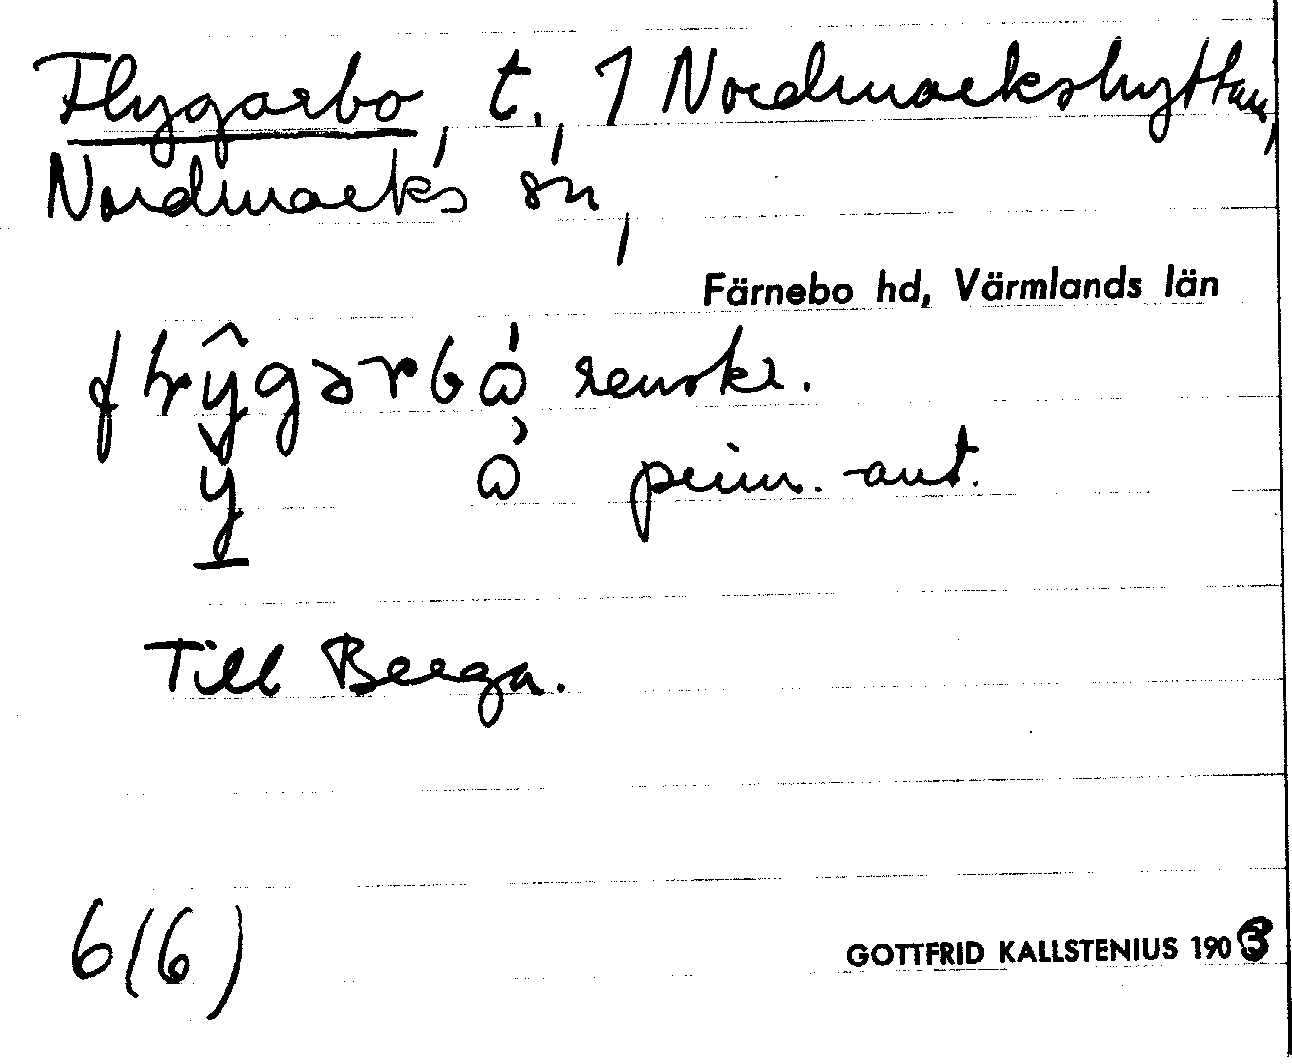 Flygarbo, t., 1 Nordmarkshyttan,
Nordmarks sn,
Färnebo hd, Värmlands län
renskr.
prim. ant.
Till Berga.
6(6)
GOTTFRID KALLSTENIUS 1903